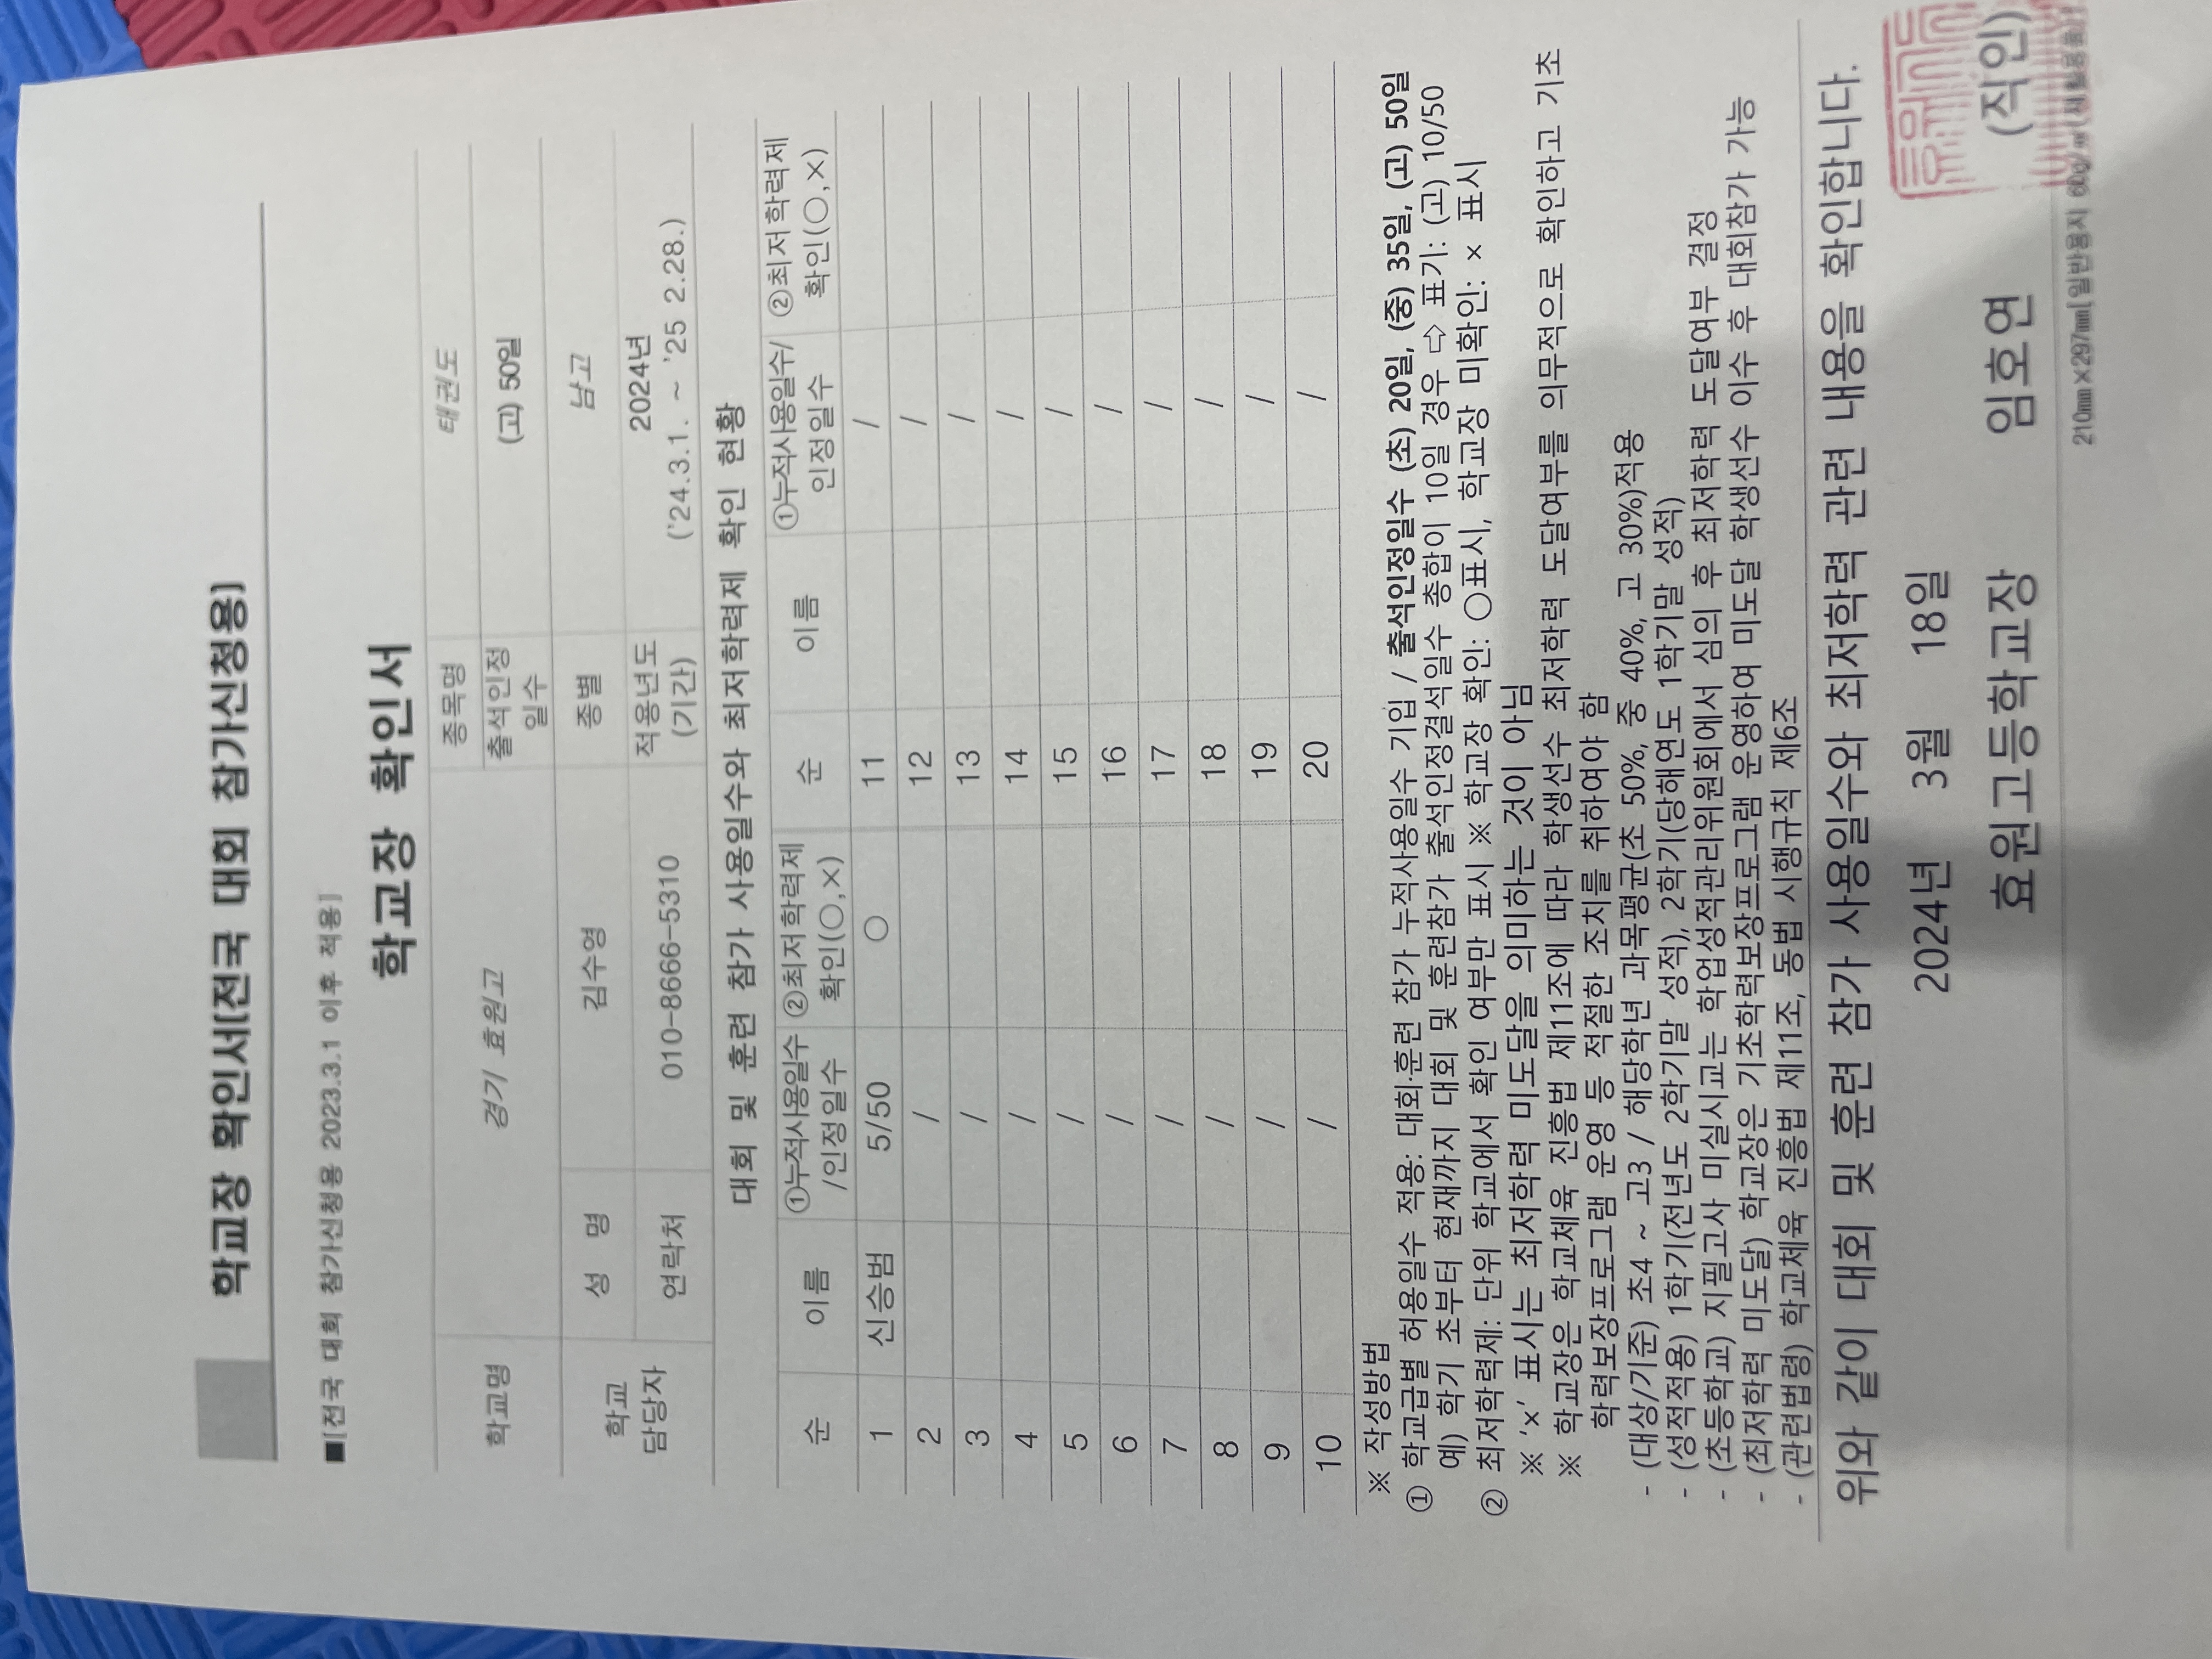 학교장 확인서[전국 대회 참가신청용]
■[전국 대회 참가신청용 2023.3.1 이후 적용]
학교장 확인서
학교명 경기 효원고 종목명 태권도
출석인정일수 (고) 50일
학교 담당자 성 명 김수영 종별 남고
연락처 010-8666-5310 적용년도 (기간) 2024년 ('24.3.1. ~ '25 2.28.)
대회 및 훈련 참가 사용일수와 최저학력제 확인 현황
순 이름 ①누적사용일수/인정일수 ②최저학력제 확인(○,×) 순 이름 ①누적사용일수/인정일수 ②최저학력제 확인(○,×)
1 신승범 5/50 ○ 11 /
2 / 12 /
3 / 13 /
4 / 14 /
5 / 15 /
6 / 16 /
7 / 17 /
8 / 18 /
9 / 19 /
10 / 20 /
※ 작성방법
① 학교급별 허용일수 적용: 대회·훈련 참가 누적사용일수 기입 / 출석인정일수 (초) 20일, (중) 35일, (고) 50일
예) 학기 초부터 현재까지 대회 및 훈련참가 출석인정결석일수 총합이 10일 경우 ⇨ 표기: (고) 10/50
② 최저학력제: 단위 학교에서 확인 여부만 표시 ※ 학교장 확인: ○표시, 학교장 미확인: × 표시
※ 'x' 표시는 최저학력 미도달을 의미하는 것이 아님
※ 학교장은 학교체육 진흥법 제11조에 따라 학생선수 최저학력 도달여부를 의무적으로 확인하고 기초
학력보장프로그램 운영 등 적절한 조치를 취하여야 함
- (대상/기준) 초4 ~ 고3 / 해당학년 과목평균(초 50%, 중 40%, 고 30%)적용
- (성적적용) 1학기(전년도 2학기말 성적), 2학기(당해연도 1학기말 성적)
- (초등학교) 지필고사 미실시교는 학업성적관리위원회에서 심의 후 최저학력 도달여부 결정
- (최저학력 미도달) 학교장은 기초학력보장프로그램 운영하여 미도달 학생선수 이수 후 대회참가 가능
- (관련법령) 학교체육 진흥법 제11조, 동법 시행규칙 제6조
위와 같이 대회 및 훈련 참가 사용일수와 최저학력 관련 내용을 확인합니다.
2024년 3월 18일
효원고등학교장 임호연 (직인)
210㎜×297㎜[일반용지 60g/㎡(재활용품)]